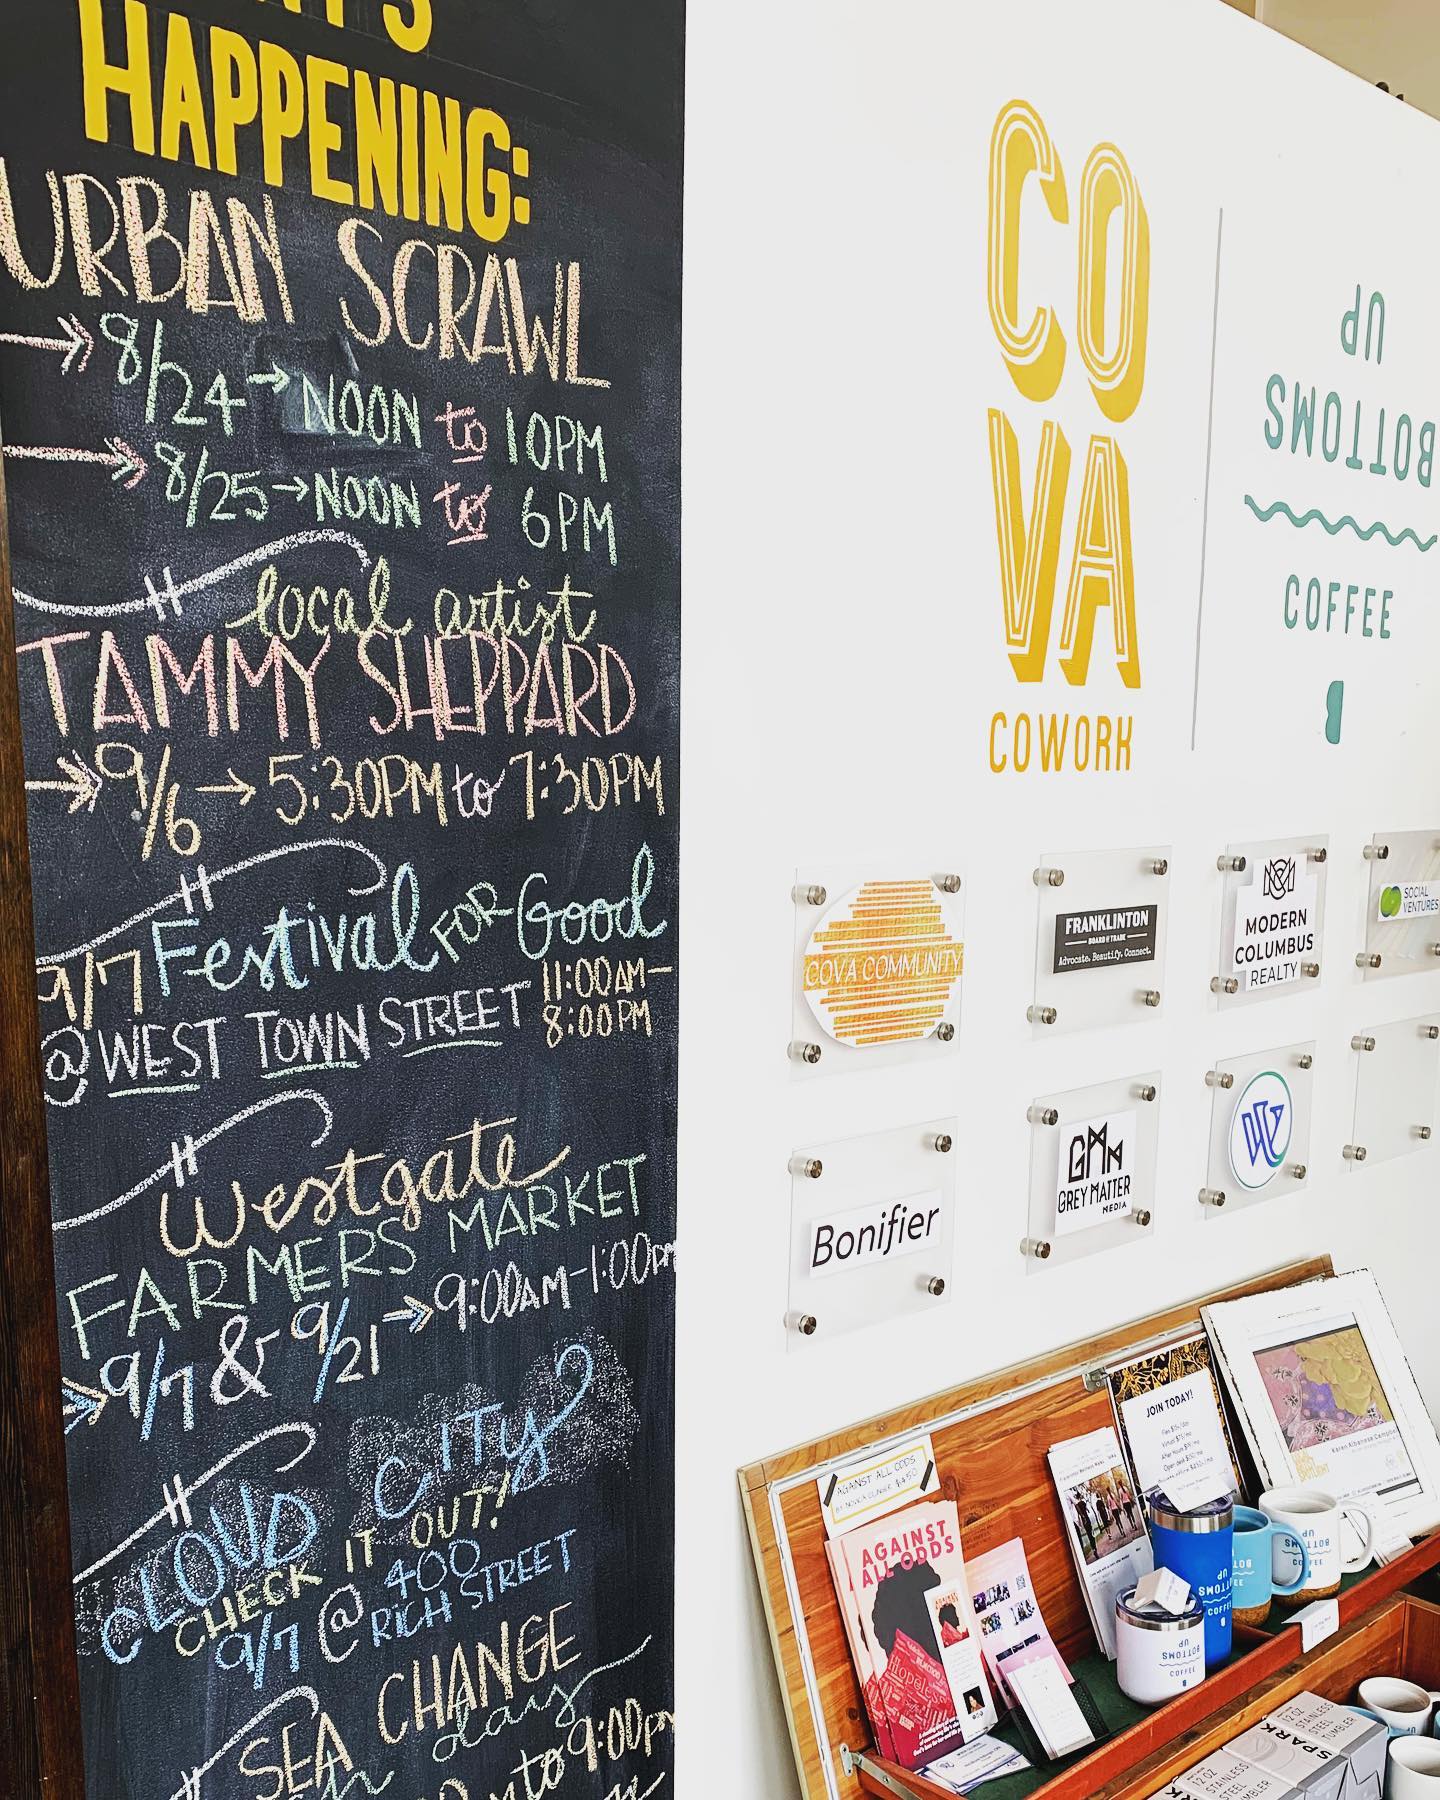 HAPPENING:
URBAN SCRAWL
8/24 → NOON to 10PM
8/25 → NOON to 6PM
local artist
TAMMY SHEPPARD
9/6 → 5:30PM to 7:30PM
Festival FOR Good
9/7 11:00AM-
@ WEST TOWN STREET 8:00PM
Westgate
FARMERS MARKET
9/7 & 9/21 → 9:00AM-1:00PM
CLOUD CITY
CHECK IT OUT!
9/7 @ 400
RICH STREET
SEA CHANGE
day
to 9:00PM
CO
VA
COWORK
UP
BOTTOMS
COFFEE
COVA COMMUNITY
FRANKLINTON
BOARD OF TRADE
Advocate. Beautify. Connect.
MODERN
COLUMBUS
REALTY
SOCIAL
VENTURES
Bonifier
GMM
GREY MATTER
MEDIA
W
JOIN TODAY!
AGAINST ALL ODDS
AGAINST
ALL ODDS
Hopeless
Karen Albanese Campbell
BOTTOMS
UP
COFFEE
UP
BOTTOMS
COFFEE
UP
BOTTOMS
COFFEE
SPARK
12 OZ
STAINLESS
STEEL
TUMBLER
12 OZ
STAINLESS
STEEL
TUMBLER